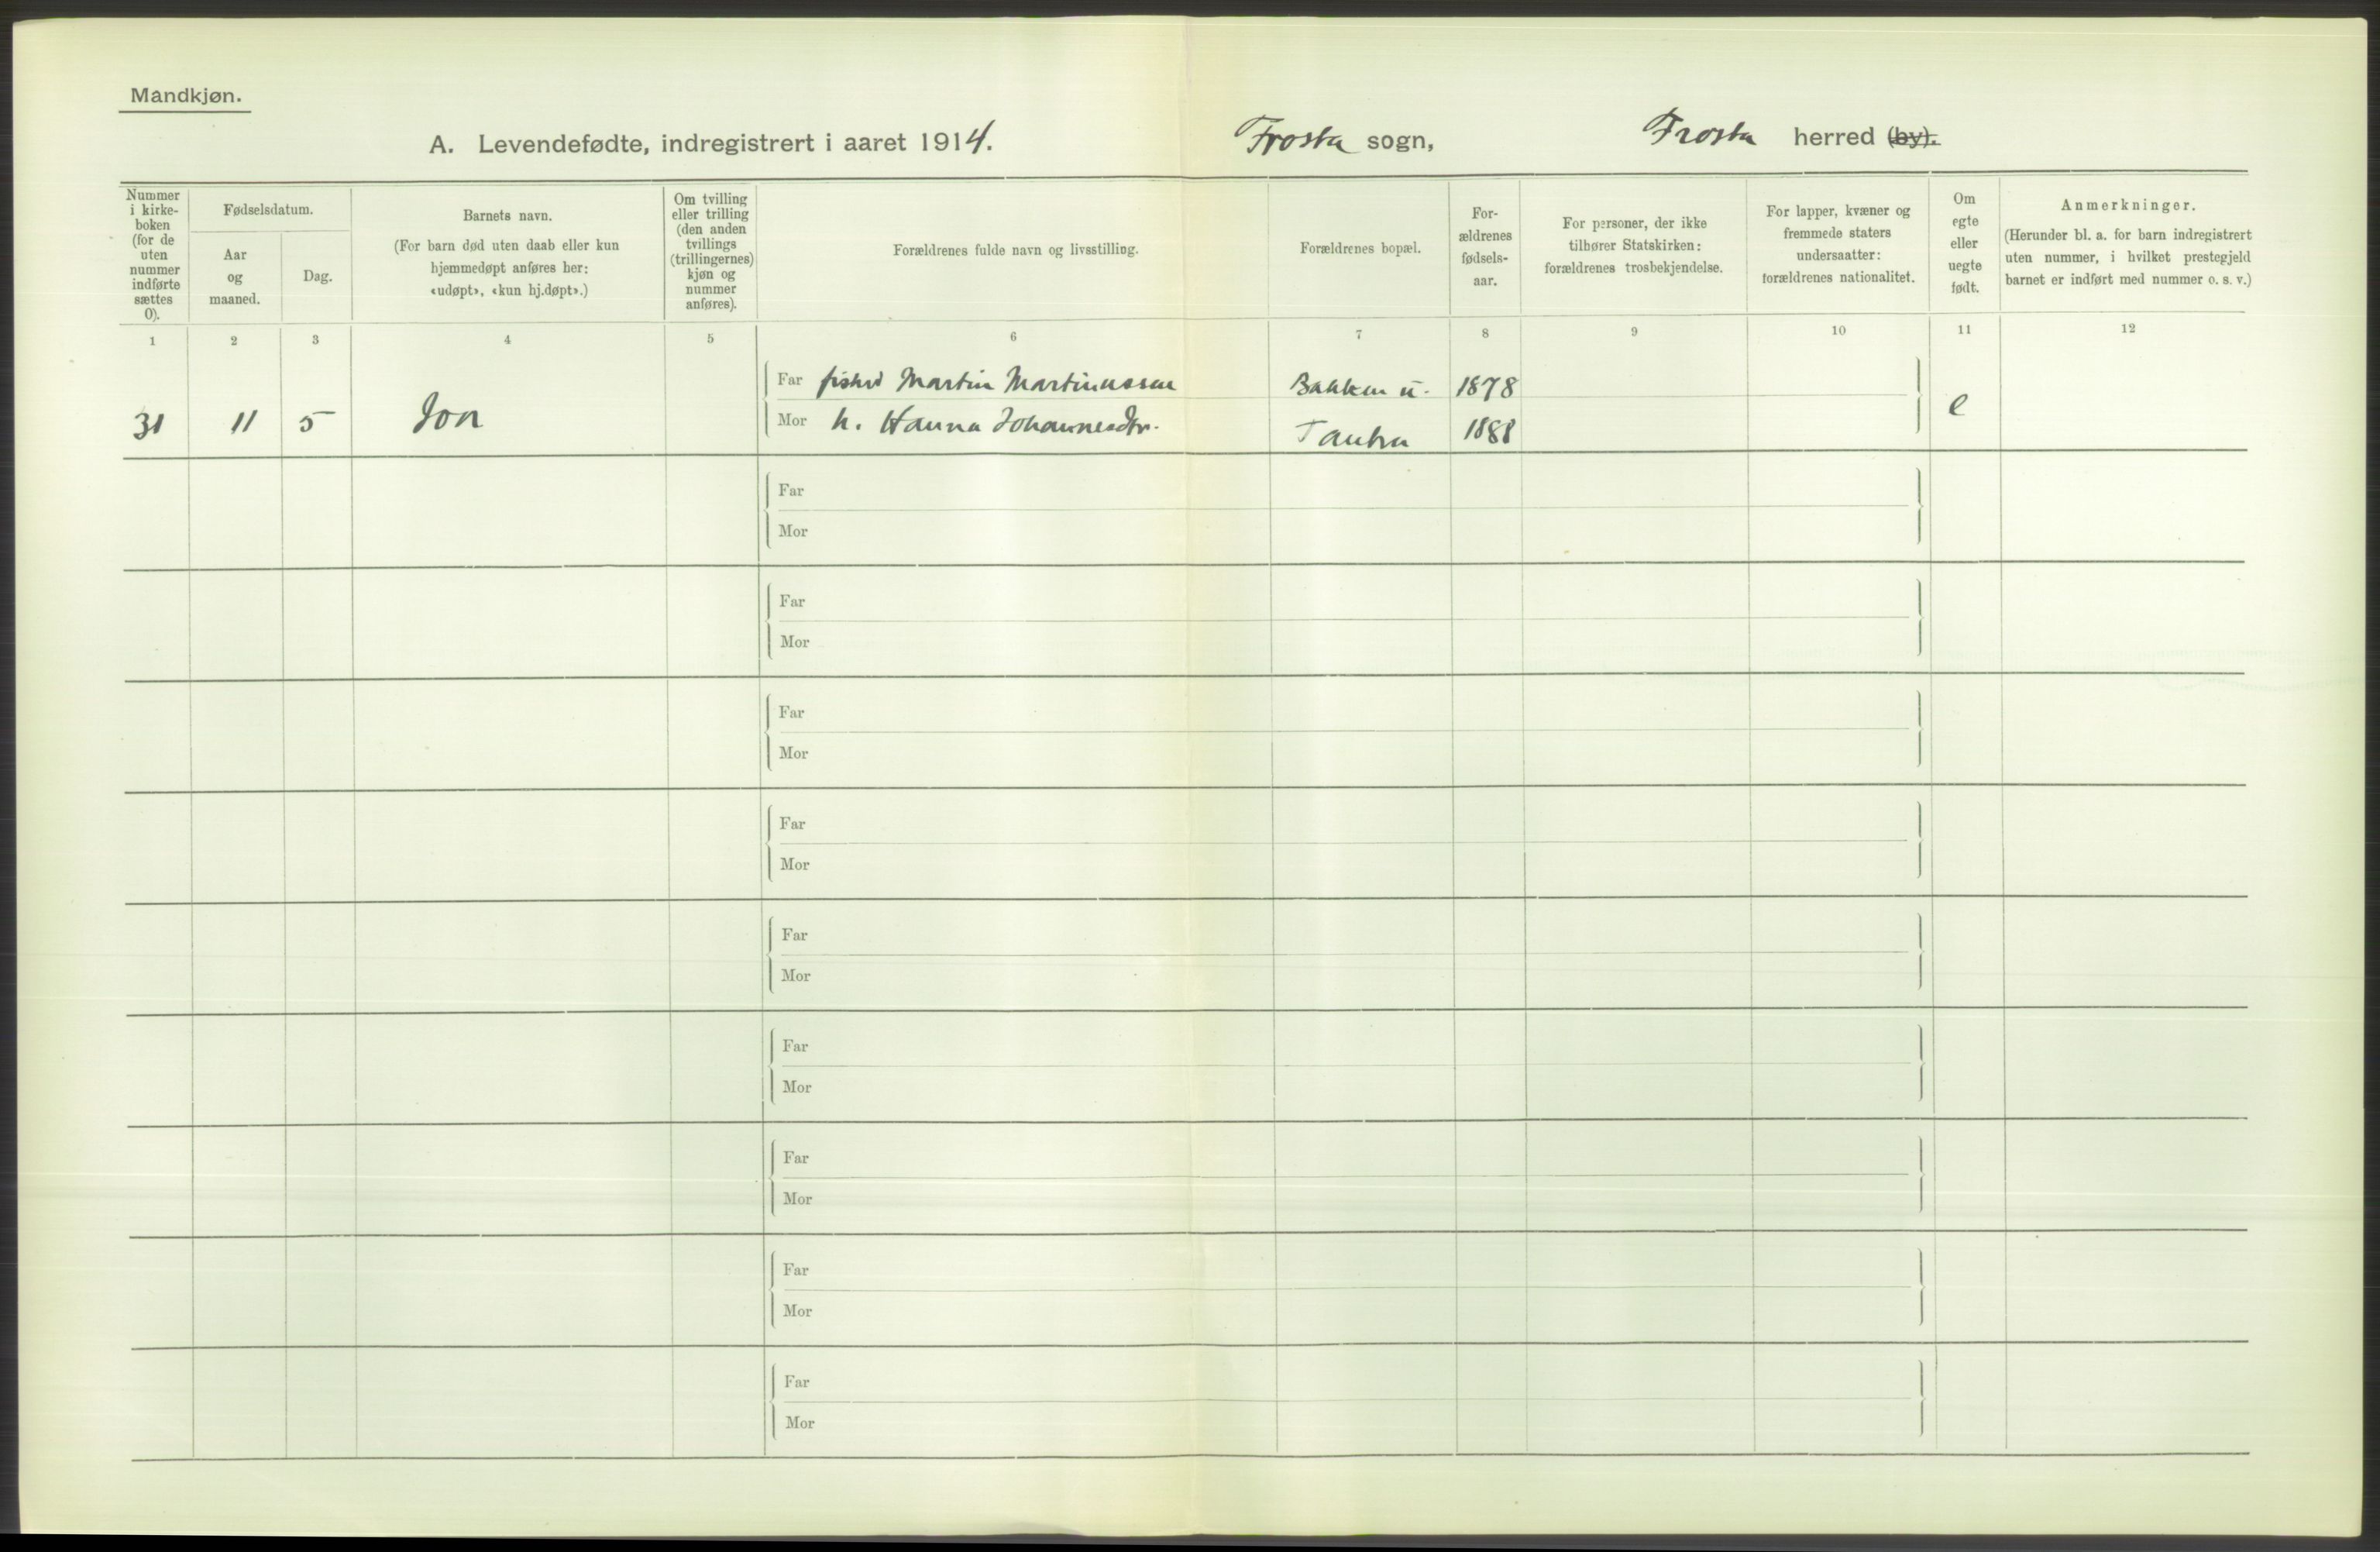 Mandkjøn.
A. Levendefødte, indregistrert i aaret 1914. Frosta sogn, Frosta herred (by).
Nummer i kirke- boken (for de uten nummer indførte sættes 0).
Fødselsdatum.
Aar og maaned.
Dag.
Barnets navn.
(For barn død uten daab eller kun
hjemmedøpt anføres her:
«udøpt», «kun hj.døpt».)
Om tvilling
eller trilling
(den anden
tvillings
(trillingernes)
kjøn og
nummer
anføres).
Forældrenes fulde navn og livsstilling.
Forældrenes bopæl.
For-
ældrenes
fødsels-
aar.
For personer, der ikke
tilhører Statskirken:
forældrenes trosbekjendelse.
For lapper, kvæner og
fremmede staters
undersaatter:
forældrenes nationalitet.
Om
egte
eller
uegte
født.
Anmerkninger.
(Herunder bl. a. for barn indregistrert
uten nummer, i hvilket prestegjeld
barnet er indført med nummer o. s. v.)
1 2 3 4 5 6 7 8 9 10 11 12
Far fisker Martin Martinussen Bakken u. 1878
31 11 5 Jon Mor h. Hanna Johannesdtr. Tautra 1888 e
Far
Mor
Far
Mor
Far
Mor
Far
Mor
Far
Mor
Far
Mor
Far
Mor
Far
Mor
Far
Mor